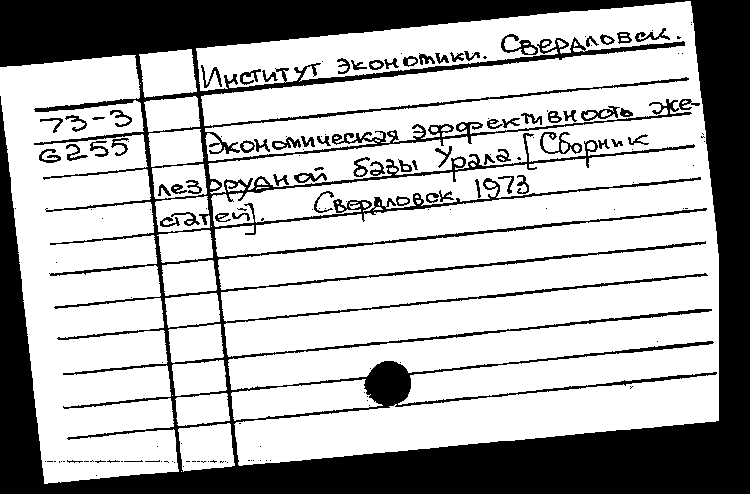 Институт экономики. Свердловск.
73-3
6255
Экономическая эффективность же-
лезорудной базы Урала. [Сборник
статей]. Свердловск, 1973